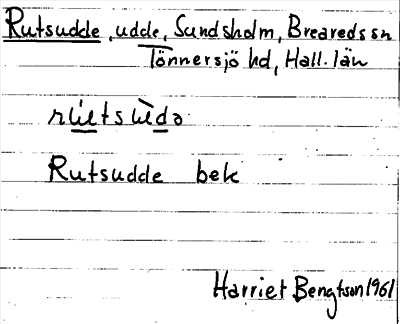 Rutsudde, udde, Sundsholm, Breareds sn
Tönnersjö hd, Hall. län
Rutsudde bek
Harriet Bengtson 1961